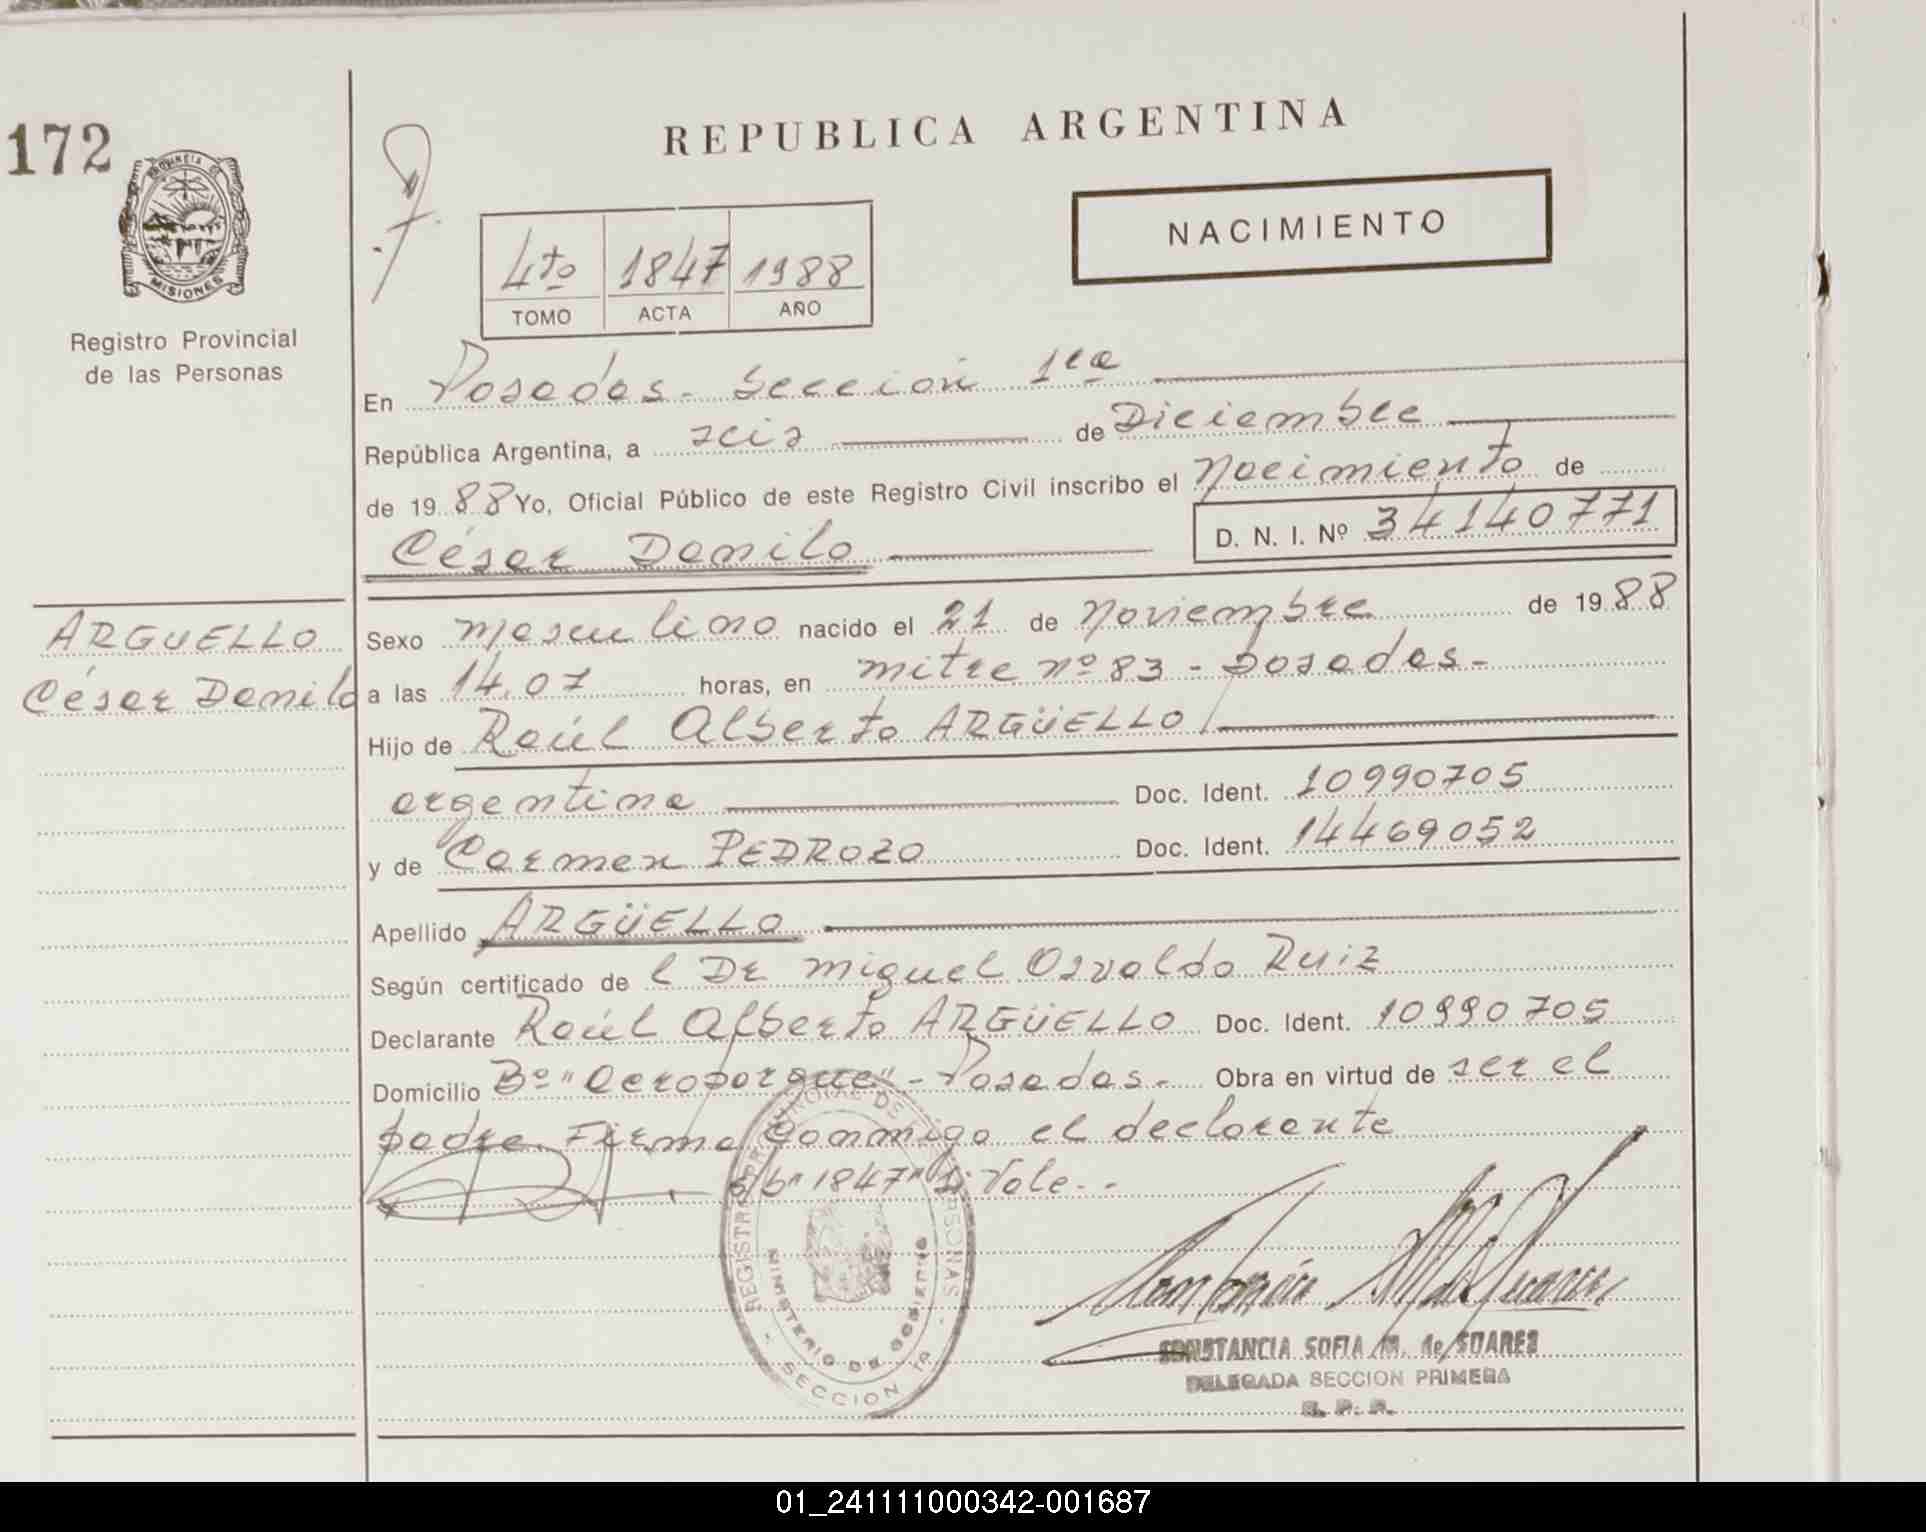 172
PROVINCIA DE
MISIONES
Registro Provincial
de las Personas
ARGUELLO
César Danilo
REPUBLICA ARGENTINA
NACIMIENTO
4to 1847 1988
TOMO ACTA AÑO
En Posadas - Sección 1ra
República Argentina, a seis de Diciembre
de 1988 Yo, Oficial Público de este Registro Civil inscribo el Nacimiento de
César Danilo D. N. I. Nº 34140771
Sexo masculino nacido el 21 de Noviembre de 1988
a las 14,07 horas, en mitre nº 83 - posadas -
Hijo de Raúl Alberto ARGÜELLO
argentina Doc. Ident. 10990705
y de Carmen PEDROZO Doc. Ident. 14469052
Apellido ARGÜELLO
Según certificado de l Dr miguel Osvaldo Ruiz
Declarante Raúl Alberto ARGÜELLO Doc. Ident. 10990705
Domicilio Bº "Aeroparque" - Posadas - Obra en virtud de ser el
padre. Firma conmigo el declarante
s/b "1847" Vale - -
REGISTRO PROVINCIAL DE LAS PERSONAS
MINISTERIO DE GOBIERNO
- SECCION 1A -
CONSTANCIA SOFIA M. de SUAREZ
DELEGADA SECCION PRIMERA
R. P. P.
01_241111000342-001687